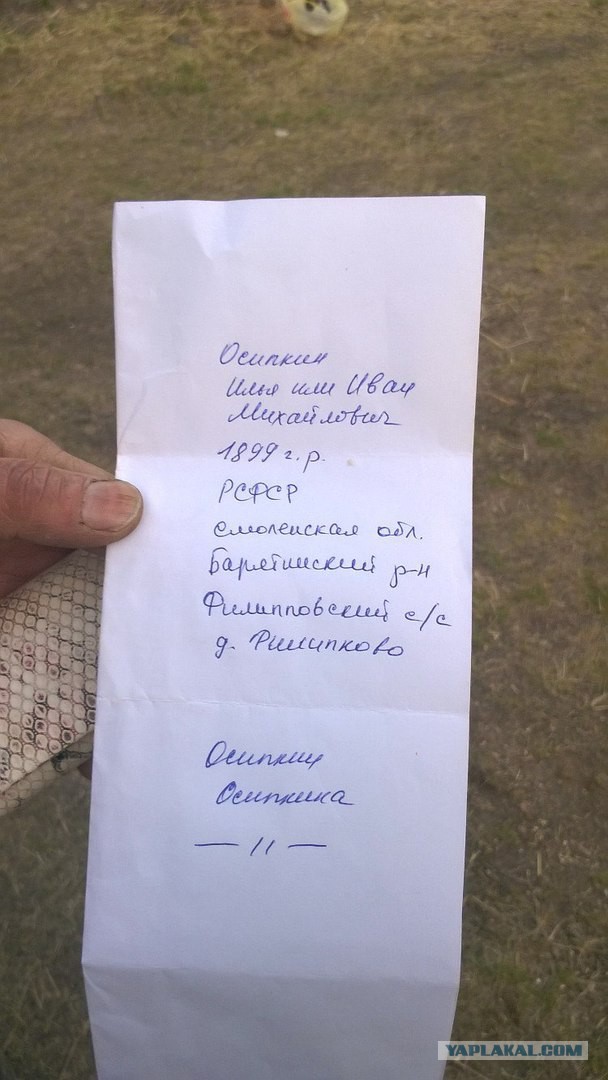 Осипкин
Илья или Иван
Михайлович
1899 г.р.
РСФСР
Смоленская обл.
Барятинский р-н
Филипповский с/с
д. Филипково
Осипкин
Осипкина
— 11 —
YAPLAKAL.COM